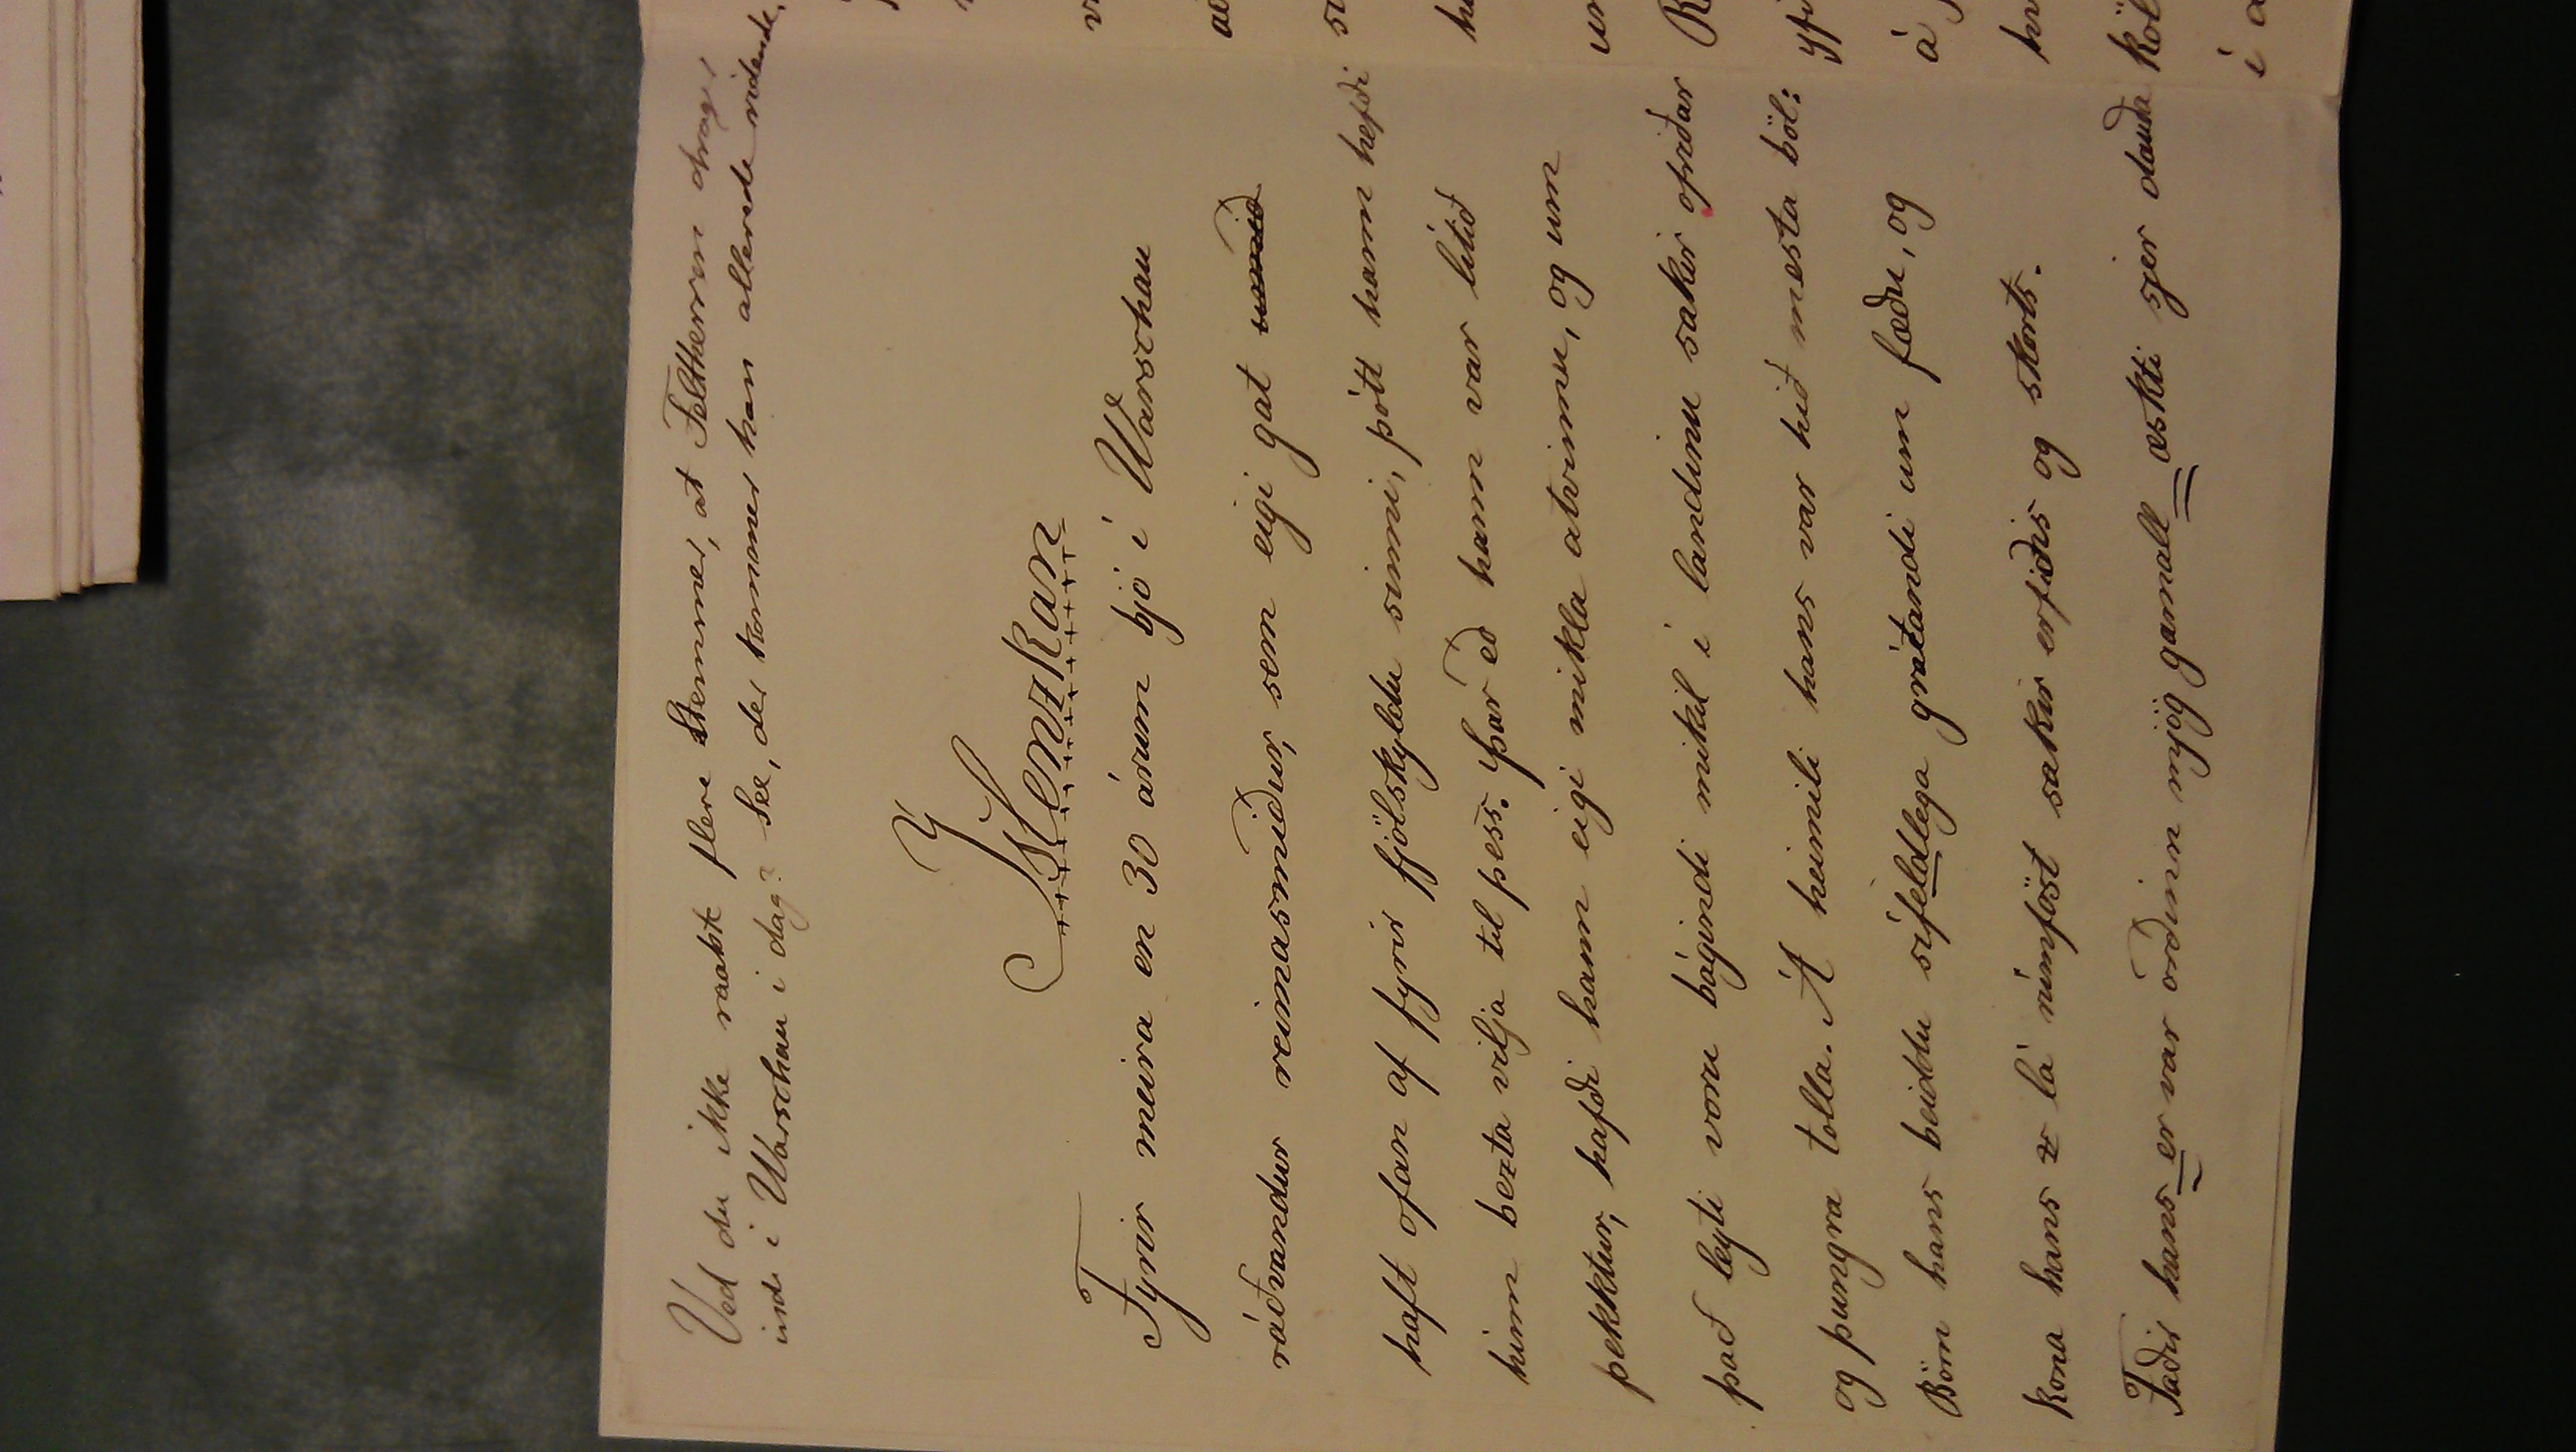 Ved du ikke raabte flere Stemmer, at Feltherren drage
ind i Warschau i dag? See, der kommer han allerede ridende,
Íslenzkan
Fyrir meira en 30 árum bjó í Warschau
ráðvandur reimasmiður, sem eigi gat unnið
haft ofan af fyrir fjölskyldu sinni, þótt hann hefði
hinn bezta vilja til þess. Þar eð hann var lítið
þekktur, hafði hann eigi mikla atvinnu, og um
það leyti voru bágindi mikil í landinu sakir ofriðar
og þungra tolla. Á heimili hans var hið mesta böl:
Börn hans beiddu sífeldlega grátandi um fæðu, og
kona hans lá rúmföst sakir erfiðis og skorts.
Faðir hans er var orðinn mjög gamall æskti sjer dauða